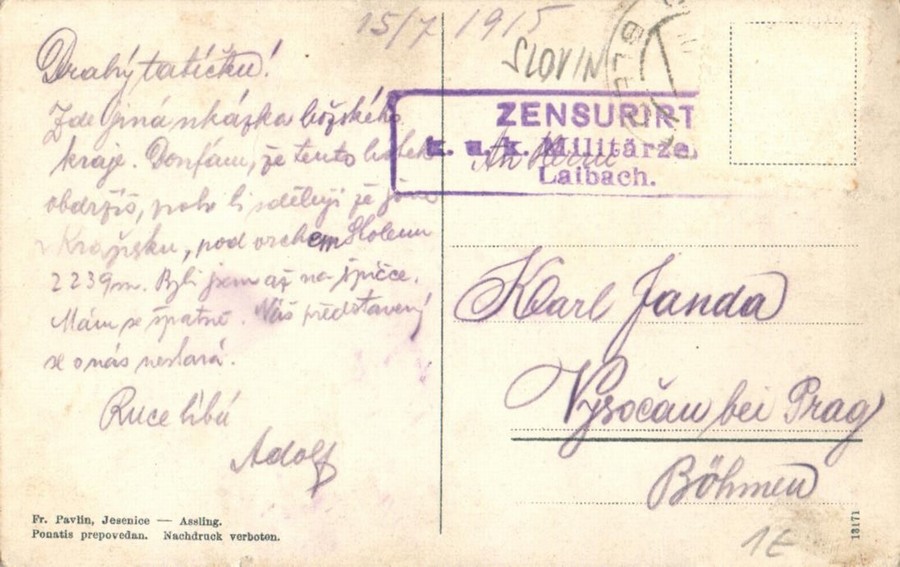 15/7 1915
SLOVIN
BLE
Drahý tatíčku!
Zde jiná ukázka božského
kraje. Doufám, že tento lístek
obdržíš, poho li sděluji že jsme
v Krajnsku, pod vrchem Stolem
2239m. Byli jsem až na špičce.
Mám se špatně. Náš představený
se o nás nestará.
Ruce líbá
Adolf
ZENSURIRT
k. u. k. Militärze
Laibach.
An Herrn
Karl Janda
Vysočan bei Prag
Böhmen
Fr. Pavlin, Jesenice — Assling.
Ponatis prepovedan. Nachdruck verboten.
13171
1E